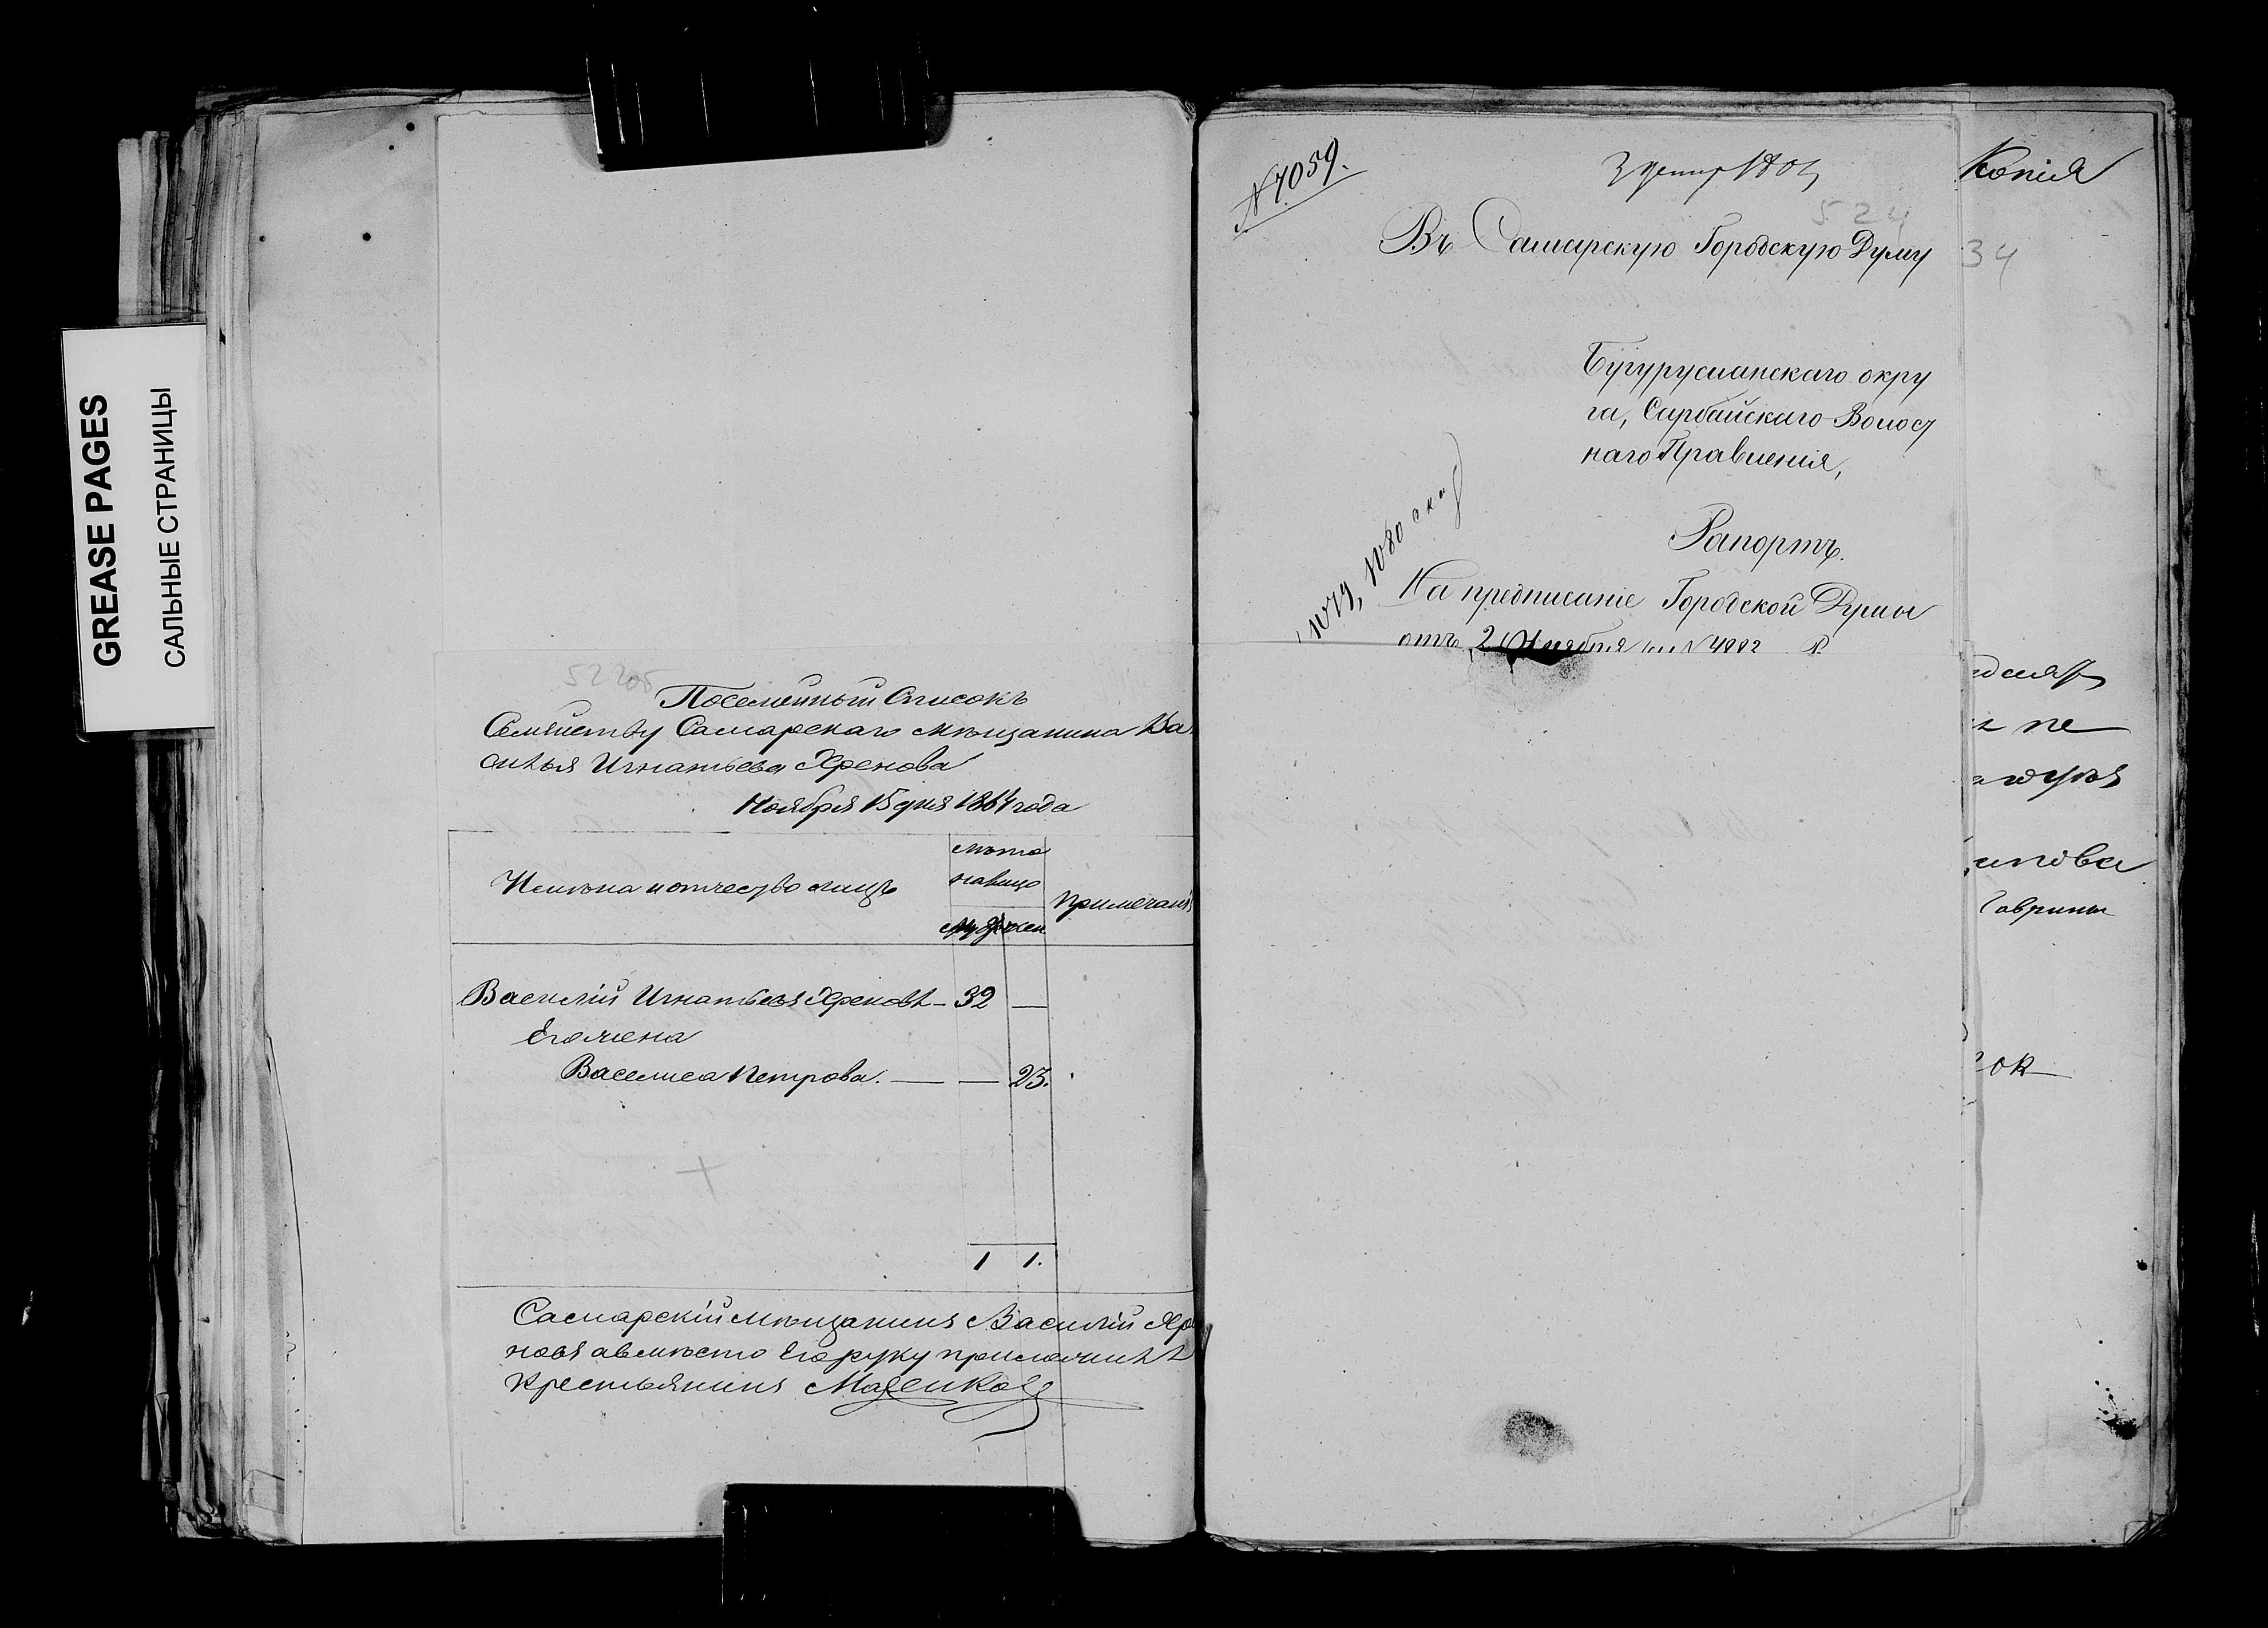 GREASE PAGES
САЛЬНЫЕ СТРАНИЦЫ
Посемейный Списокъ
Семейству Самарскаго мѣщанина Ва
силья Игнатьева Хренова
Ноября 15 дня 1864 года
Имена и отчество лицъ
лѣта
налицо
муж
жен
Примечанія
Василій Игнатьевъ Хреновъ – 32 —
Его жена
Василиса Петрова. — — 23.
1 1.
Самарскій мѣщанинъ Василій Хре
новъ авмѣсто Его руку приложилъ
Крестьянинъ
№ 7059.
524
Въ Самарскую Городскую Думу
Бугурусланскаго окру
га, Сарбайскаго Волост
наго Правленія,
Рапортъ.
1079, 1080
На предписаніе Городской Думы
отъ 2 Ноября
Копія
34